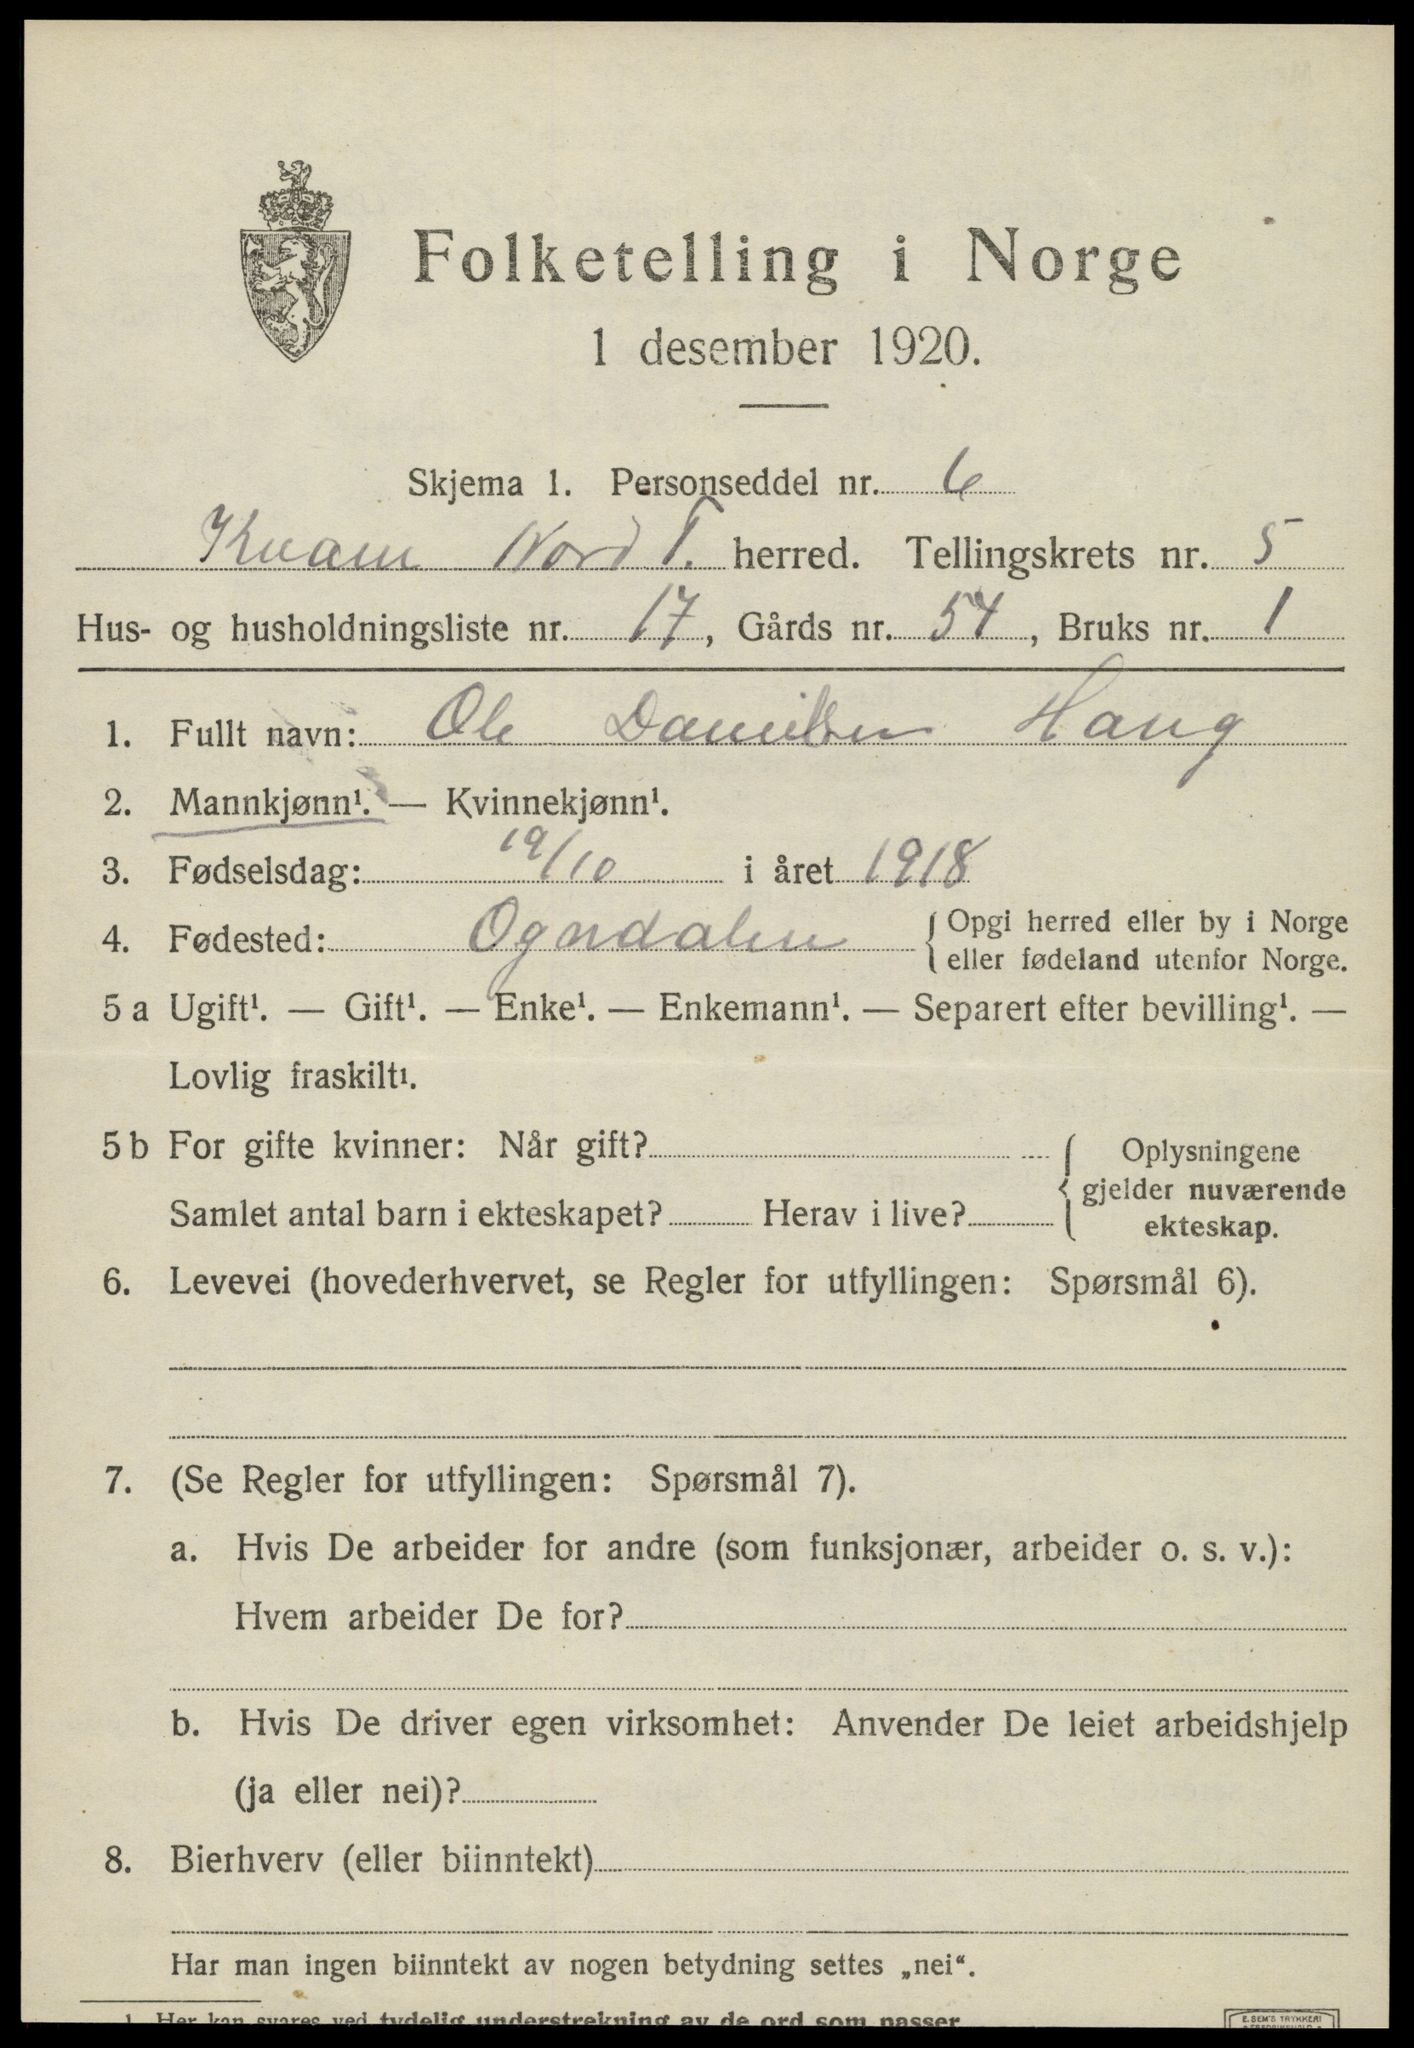 Folketelling i Norge
1 desember 1920.
Skjema 1. Personseddel nr. 6
Kvam Nord T. herred. Tellingskrets nr. 5
Hus- og husholdningsliste nr. 17, Gårds nr. 54, Bruks nr. 1
1. Fullt navn: Ole Danielsen Haug
2. Mannkjønn¹. — Kvinnekjønn¹.
3. Fødselsdag: 19/10 i året 1918
4. Fødested: Ogndalen { Opgi herred eller by i Norge
eller fødeland utenfor Norge.
5 a Ugift¹. — Gift¹. — Enke¹. — Enkemann¹. — Separert efter bevilling¹. —
Lovlig fraskilt¹.
5 b For gifte kvinner: Når gift? { Oplysningene
gjelder nuværende
ekteskap.
Samlet antal barn i ekteskapet? Herav i live?
6. Levevei (hovederhvervet, se Regler for utfyllingen: Spørsmål 6).
7. (Se Regler for utfyllingen: Spørsmål 7).
a. Hvis De arbeider for andre (som funksjonær, arbeider o. s. v.):
Hvem arbeider De for?
b. Hvis De driver egen virksomhet: Anvender De leiet arbeidshjelp
(ja eller nei)?
8. Bierhverv (eller biinntekt)
Har man ingen biinntekt av nogen betydning settes „nei“.
1 Her kan svares ved tydelig understrekning av de ord som passer
E. SEM'S TRYKKERI
FREDRIKSHALD